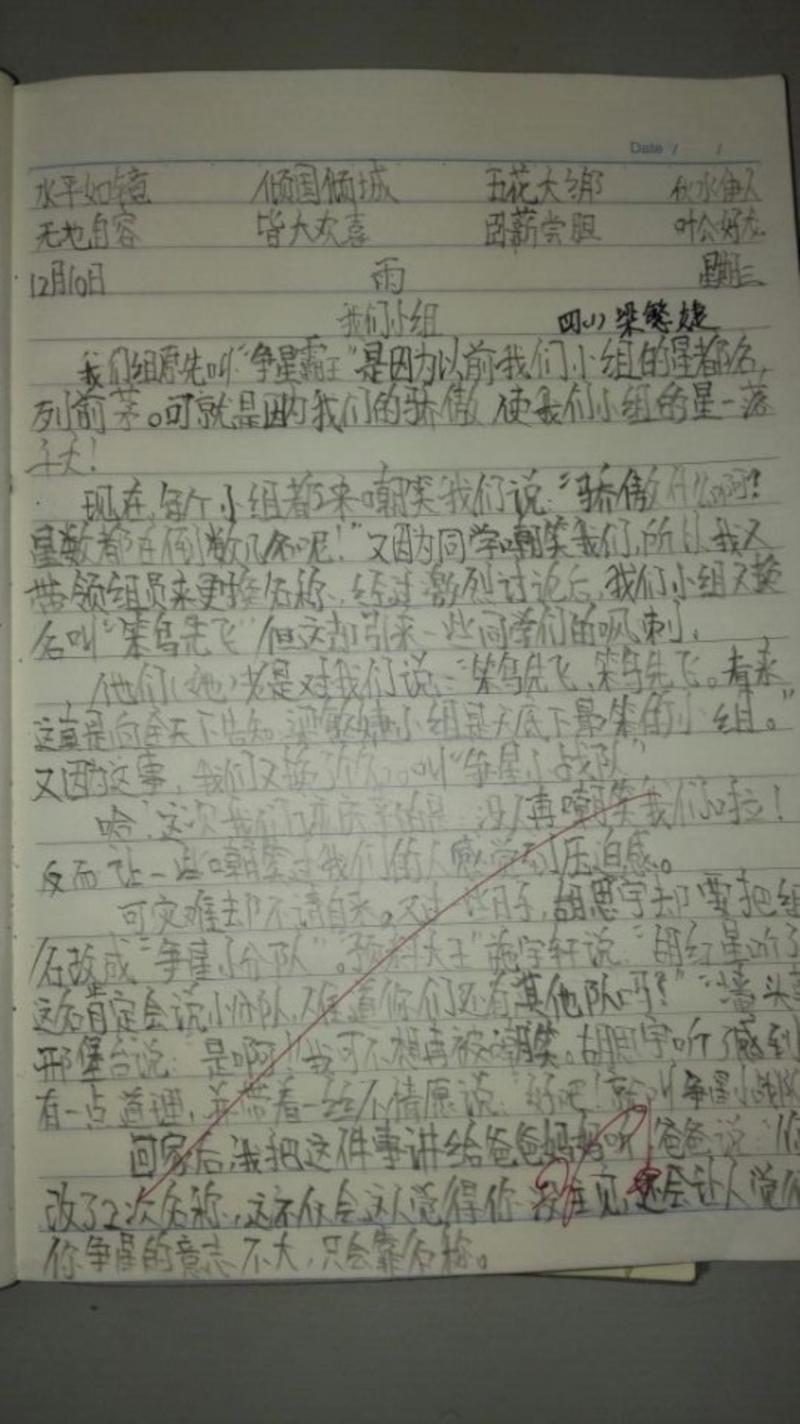 Date / /
水平如镜 倾国倾城 五花大绑 伙水伊人
无地自容 皆大欢喜 卧薪尝胆 叶公好龙
12月10日 雨 星期三
我们小组 四(1) 梁慜婕
我们组原先叫“争星霸王”是因为以前我们小组的星都名,
列前茅。可就是因为我们的骄傲 使我们小组的星一落
千丈!
现在,每个小组都来嘲笑我们说:“骄傲什么啊?
星数都在倒数几名呢!”又因为同学嘲笑我们,所以我又
带领组员来更换名称,经过激烈讨论后,我们小组又换
名叫“笨鸟先飞”但这却引来一些同学们的讽刺,
他们(她)老是对我们说:“笨鸟先飞、笨鸟先飞。看来
这真是向全天下告知梁慜婕小组是天底下最笨的小组。”
又因为这事,我们又换了名。叫“争星小战队”
哈!这次我们 庆幸的是:没人再嘲笑我们啦!
反而让一些嘲笑过我们的人感觉到压迫感。
可灾难却不请自来。又过 些日子,胡思宇却要把组
名改成“争星小分队”。 大王”施宇轩说:“胡红星听了
这名肯定会说小分队,难道你们还有其他队吗?”“墙头
邢堡台说:“是啊!我可不想再被嘲笑。胡思宇听了感到
有一点道理,并带着一丝不情愿说:“好吧!就叫争星小战队
回家后,我把这件事讲给爸爸妈妈听,爸爸说:“你
改了2次名称,这不仅会这人觉得你没主见,还会让人觉得
你争星的意志不大,只会靠名称。